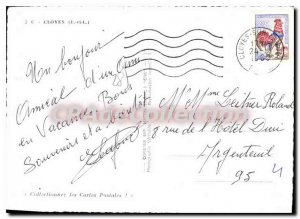 2 C - CLOYES (E.-&-L.)
CLOYES
Un bonjour
Amical d'un ami
en Vacances. Bons
Souvenirs et à bientôt
M. Mme Leitner Roland
rue de l'Hôtel Dieu
Argenteuil
95
« Collectionnez les Cartes Postales ! »